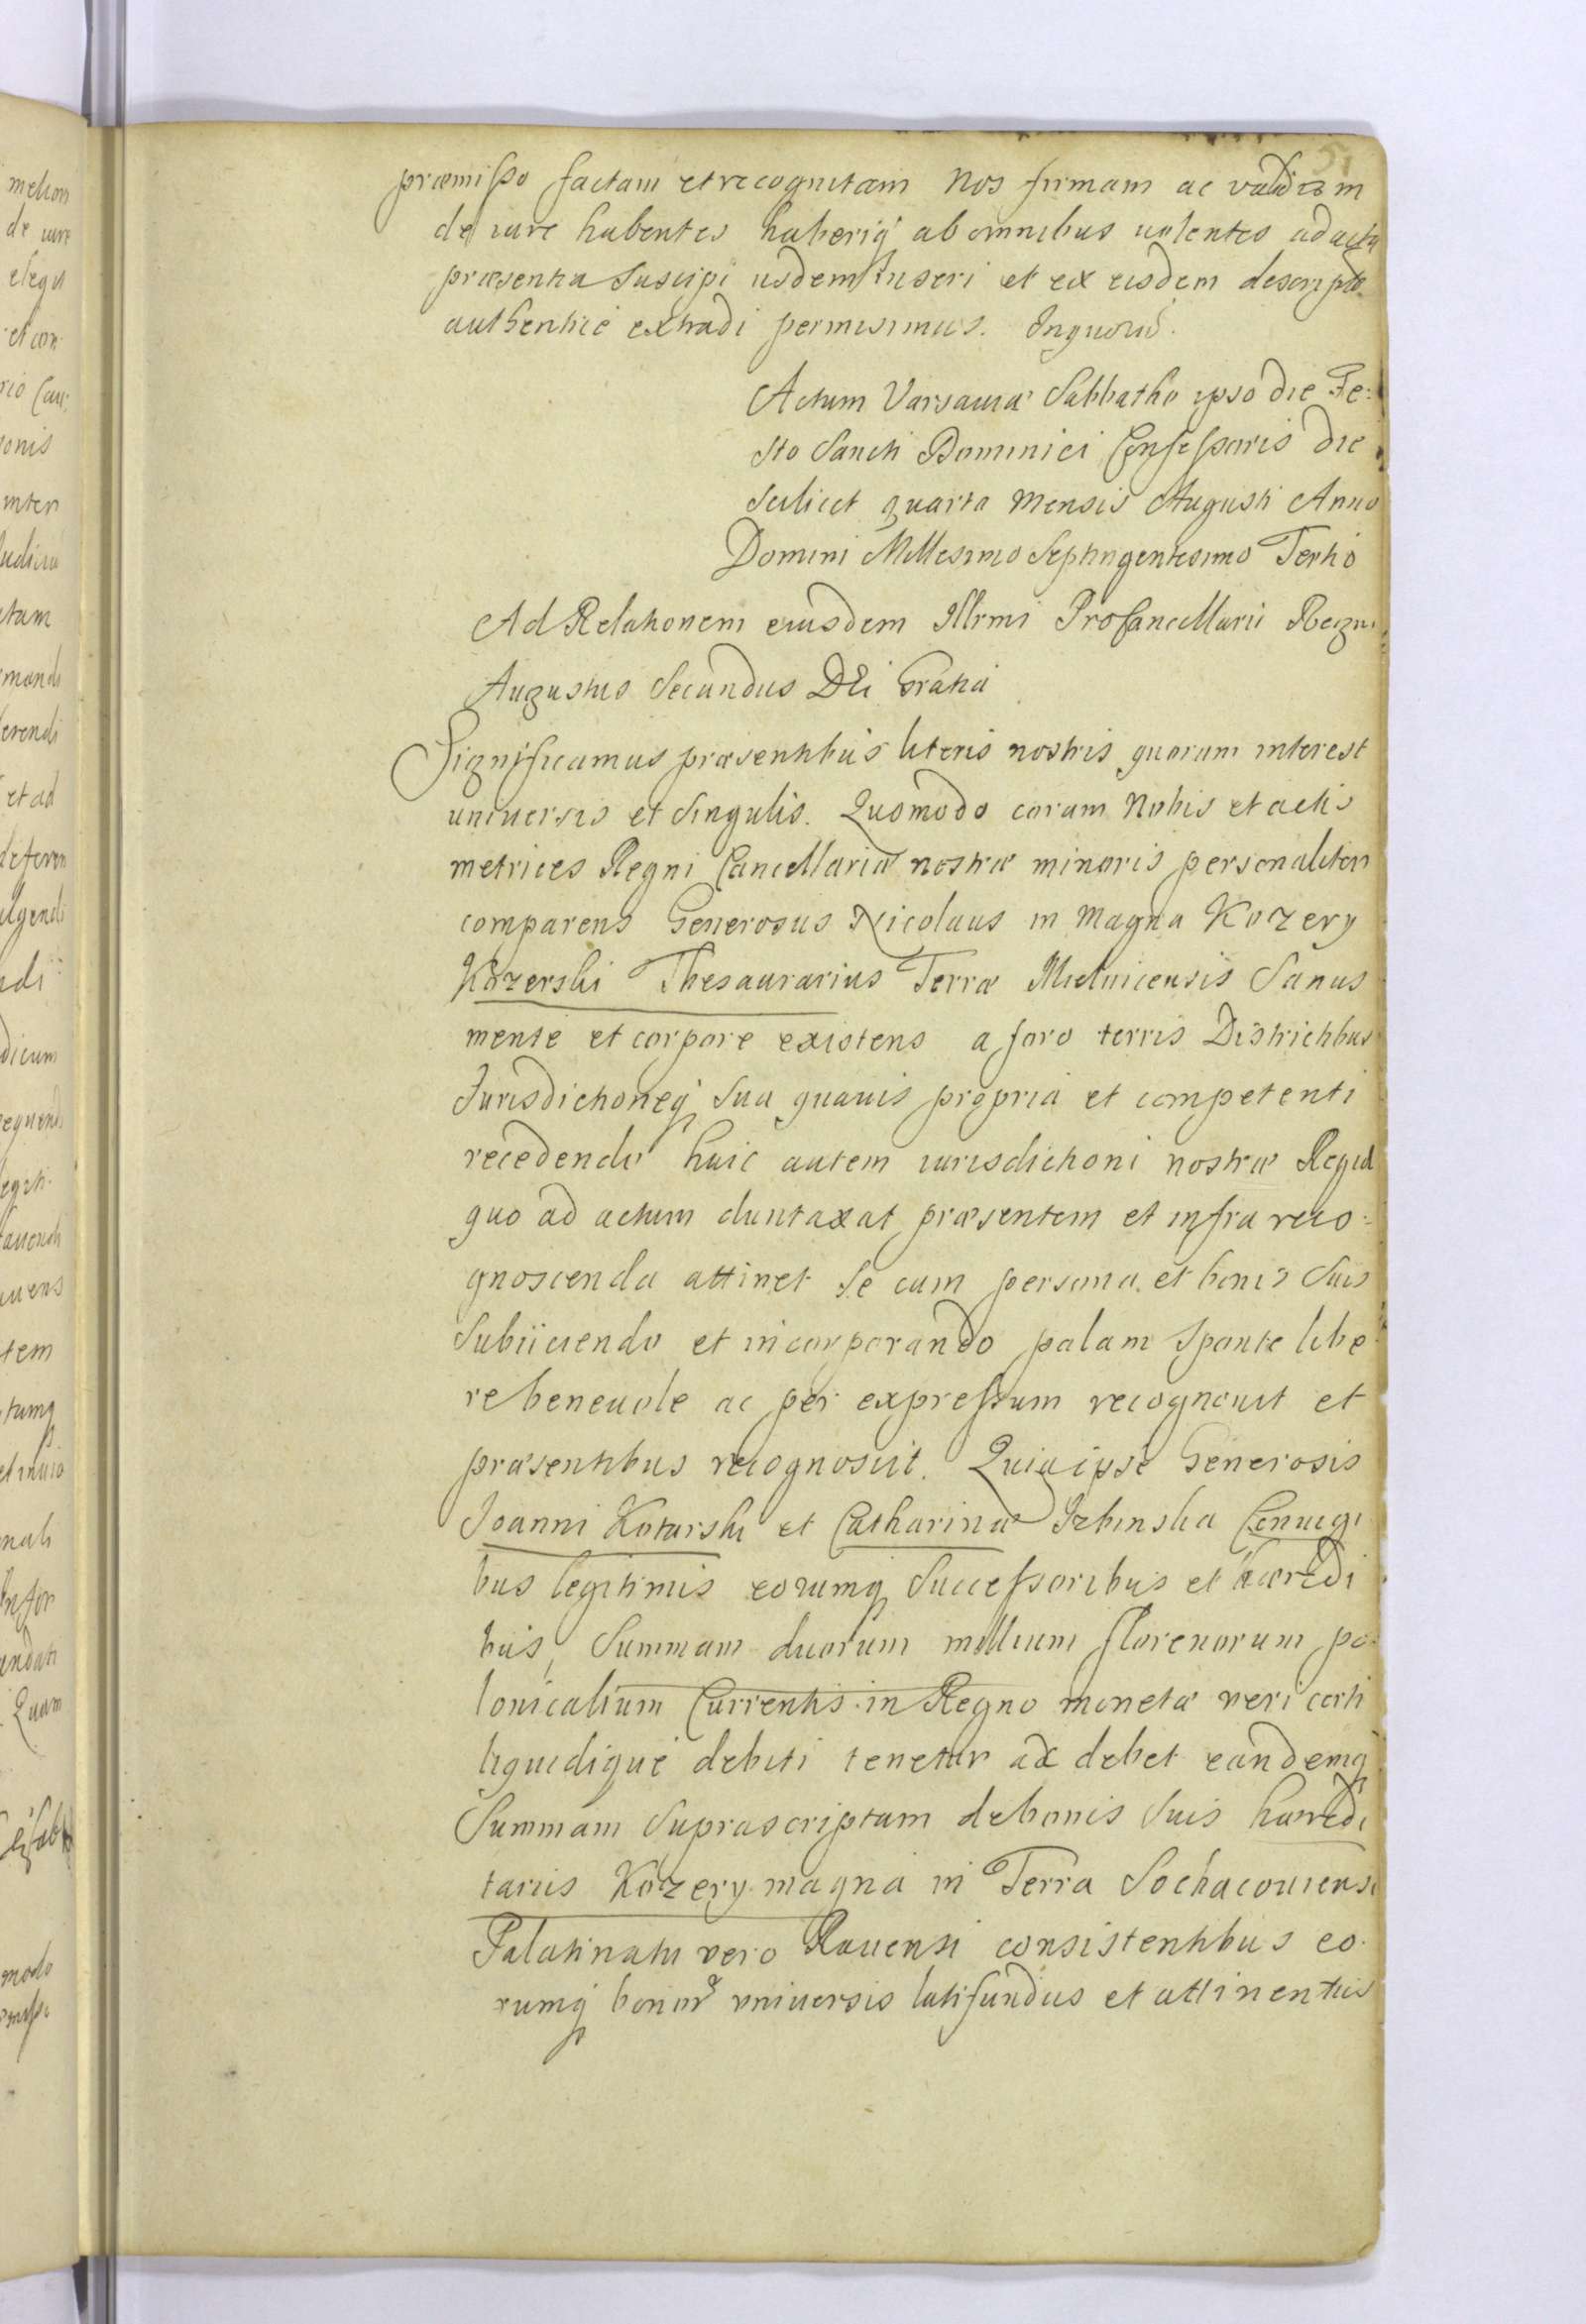 51
præmisso factam et recognitam Nos firmam ac validam
de iure habentes haberiq' ab omnibus uolentes ad acta
præsentia Suscipi iisdem Inseri et ex eisdem descripto
authentice extradi permisimus. Inquoru'.
Actum Varsauiæ Sabbatho ipso die Fe:
sto Sancti Dominici Confessoris die
Scilicet quarta Mensis Augusti Anno
Domini Millesimo Septingentesimo Tertio
Ad Relationem eiusdem Illrmi ProCancellarii Regni
Augustus Secundus DEi Gratia
Significamus præsentibus literis nostris quorum interest
uniuersis et Singulis. Quomodo coram Nobis et actis
metrices Regni Cancellariæ nostræ minoris personaliter
comparens Generosus Nicolaus in Magna Kozery
Kozerski Thesaurarius Terræ Mielnicensis Sanus
mente et corpore existens a foro terris Districtibus
Jurisdictioneq' Sua quauis propria et competenti
recedendo huic autem iurisdictioni nostræ Regiæ
quo ad actum duntaxat præsentem et infra reco:
gnoscenda attinet Se cum persona et bonis Suis
Subiiciendo et incorporando palam Sponte libe
re beneuole ac per expressum recognouit et
præsentibus recognoscit. Quia ipse Generosis
Joanni Kotarski et Catharinæ Izbinska Coniugi
bus legitimis eorumq Successoribus et hæredi
bus, Summam duorum millium florenorum po:
lonicalium Currentis in Regno monetæ veri certi
liquidique debiti tenetur ac debet eandemq
Summam Suprascriptam de bonis Suis hæredi
tariis Kozery magna in Terra Sochacouiensi
Palatinatu vero Rauensi consistentibus eo.
rumq' bonor uniuersis latifundiis et attinentiis